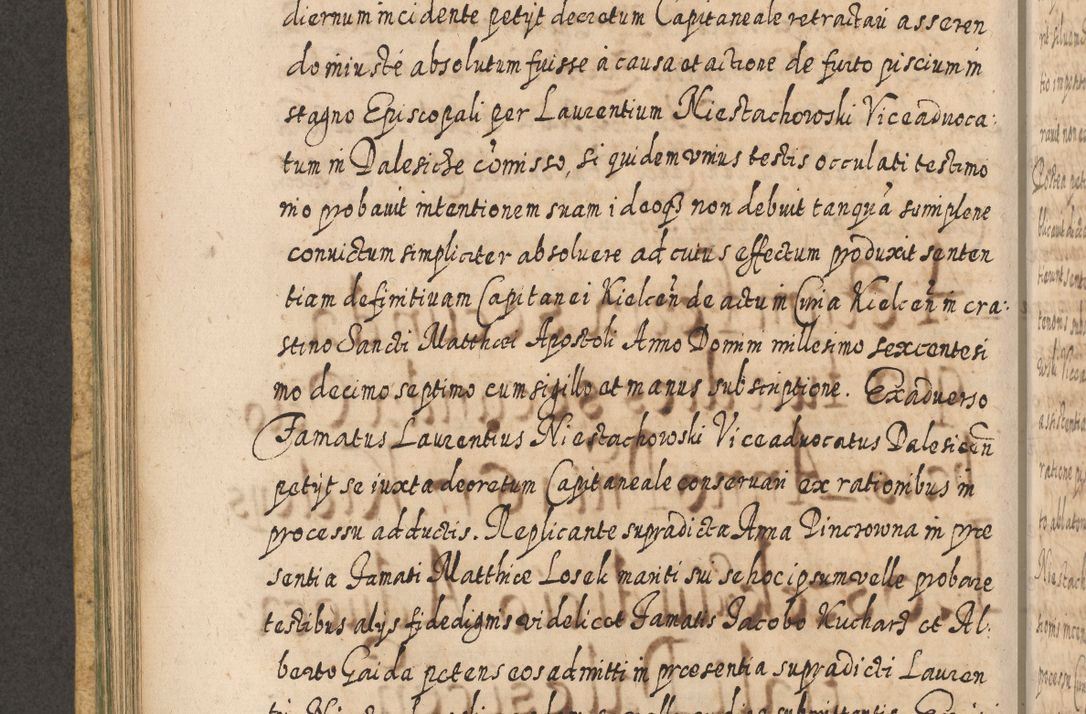 diernum incidente petÿt decretum Capitaneale retractari asseren
do iniuste absolutum fuisse à causa et actione de furto piscium in
stagno Episcopali per Laurentium Niestachowski Viceaduoca:
tum in Dalesiche com̄isso, si quidem vnius testis occulati testimo
nio probauit intentionem suam ideoq; non debuit tanquā semiplene
conuictum simpliciter absoluere ad cuius effectum produxit senten
tiam definitiuam Capitanei Kielcen̄ de actu in Curia Kielcen̄ in cra:
stino Sancti Matthæi Apostoli Anno Domini millesimo sexcentesi
mo decimo septimo cum sigillo et manus subscriptione. Ex aduerso
Famatus Laurentius Niestachowski Viceaduocatus Dalesicen̄
petÿt se iuxta decretum Capitaneale conseruari ex rationibus in
processu adductis. Replicante supradicta Anna Pincrowna in præ
sentia Famati Matthiæ Losek mariti sui se hoc ipsum velle probare
testibus alÿs fidedignis videlicet Famatis Jacobo Kuchars et Al:
berto Gaida petens eos admitti in præsentia supradicti Lauren